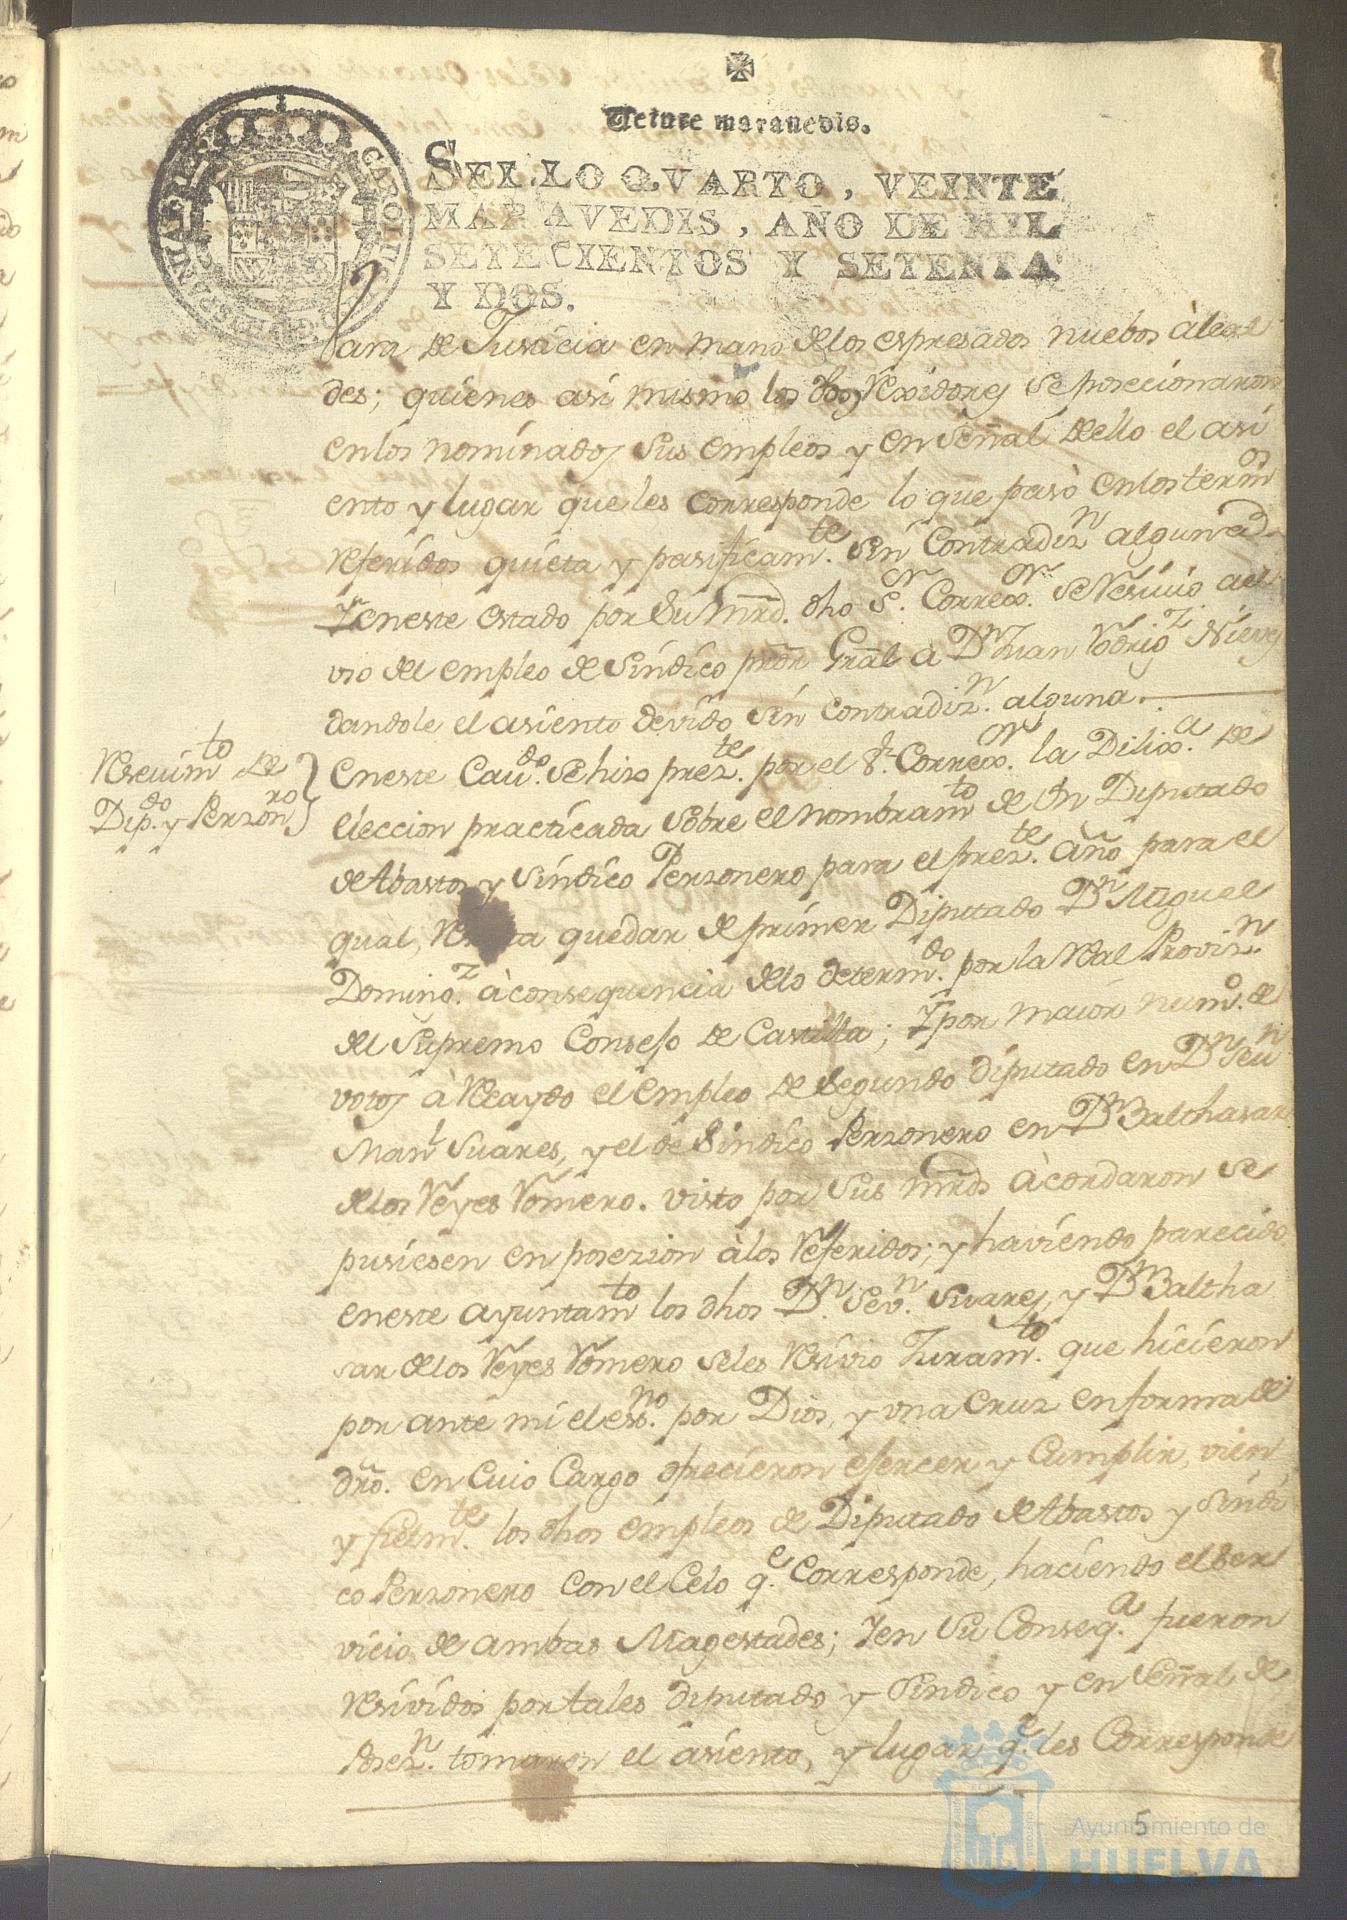 Veinte maravedis.
SELLO QVARTO, VEINTE
MARAVEDIS, AÑO DE MIL
SETECIENTOS Y SETENTA
Y DOS.
CAROLUS D.G. HISPANIAR
Vara de Justicia en mano delos espresados nuebos àlcal
des; quienes asi mismo los dhos Rexidores se posecionaron
enlos nominados sus empleos y en señal dello el asi
ento y lugar que les corresponde lo que pasò enlos termos
referidos quieta y pasificamte. sin Contradizn alguna
Yeneste estado por su Mrd. dho Sr. Correxor. se
vio del empleo de Sindico prōr Grāl a Dn Juan Rodrigz Nieves
dandole el asiento devido sin contradizn. alguna.
Resevimto de
Dipdo. y Perzonro
eneste Cavdo. se hizo prezte. por el Sr. Correxor. la Dilixa. de
eleccion practicada sobre el nombramto de Un Diputado
de Abastos y Sindico Perzonero para el prezte. año para el
qual, quedar de primer Diputado Dn Miguel
Domingz. à consequencia delo determdo. por la Real Provizn.
del Supremo Consejo de Castilla; Y por maior numo. de
votos à Recaydo el empleo de Segundo diputado en Dn Sevn
Manl Suares, y el de Sindico Perzonero en Dn Balthasar
delos Reyes Romero. visto por sus mrds àcordaron se
pusiesen en posezion àlos Referidos; y haviendo parecido
eneste ayuntamto los dhos Dn. Sevn. Suares, y Dn Baltha
sar delos Reyes Romero seles Resivio Juramto. que hicieron
por ante mi el essno. por Dios, y una Cruz en forma de
dro. en Cuio Cargo ofrecieron esercer y Cumplir, vien
y fielmte. los dhos empleos de Diputado de Abastos y Sindi
co Perzonero con el Celo qe. Corresponde, haciendo el Ser
vicio de ambas Magestades; Yen Su Conseqa. fueron
Resividos por tales diputado y Sindico y en Señal de
Posezn. tomaron el asiento, y lugar qe. les Corresponde
5
Ayuntamiento de
HUELVA